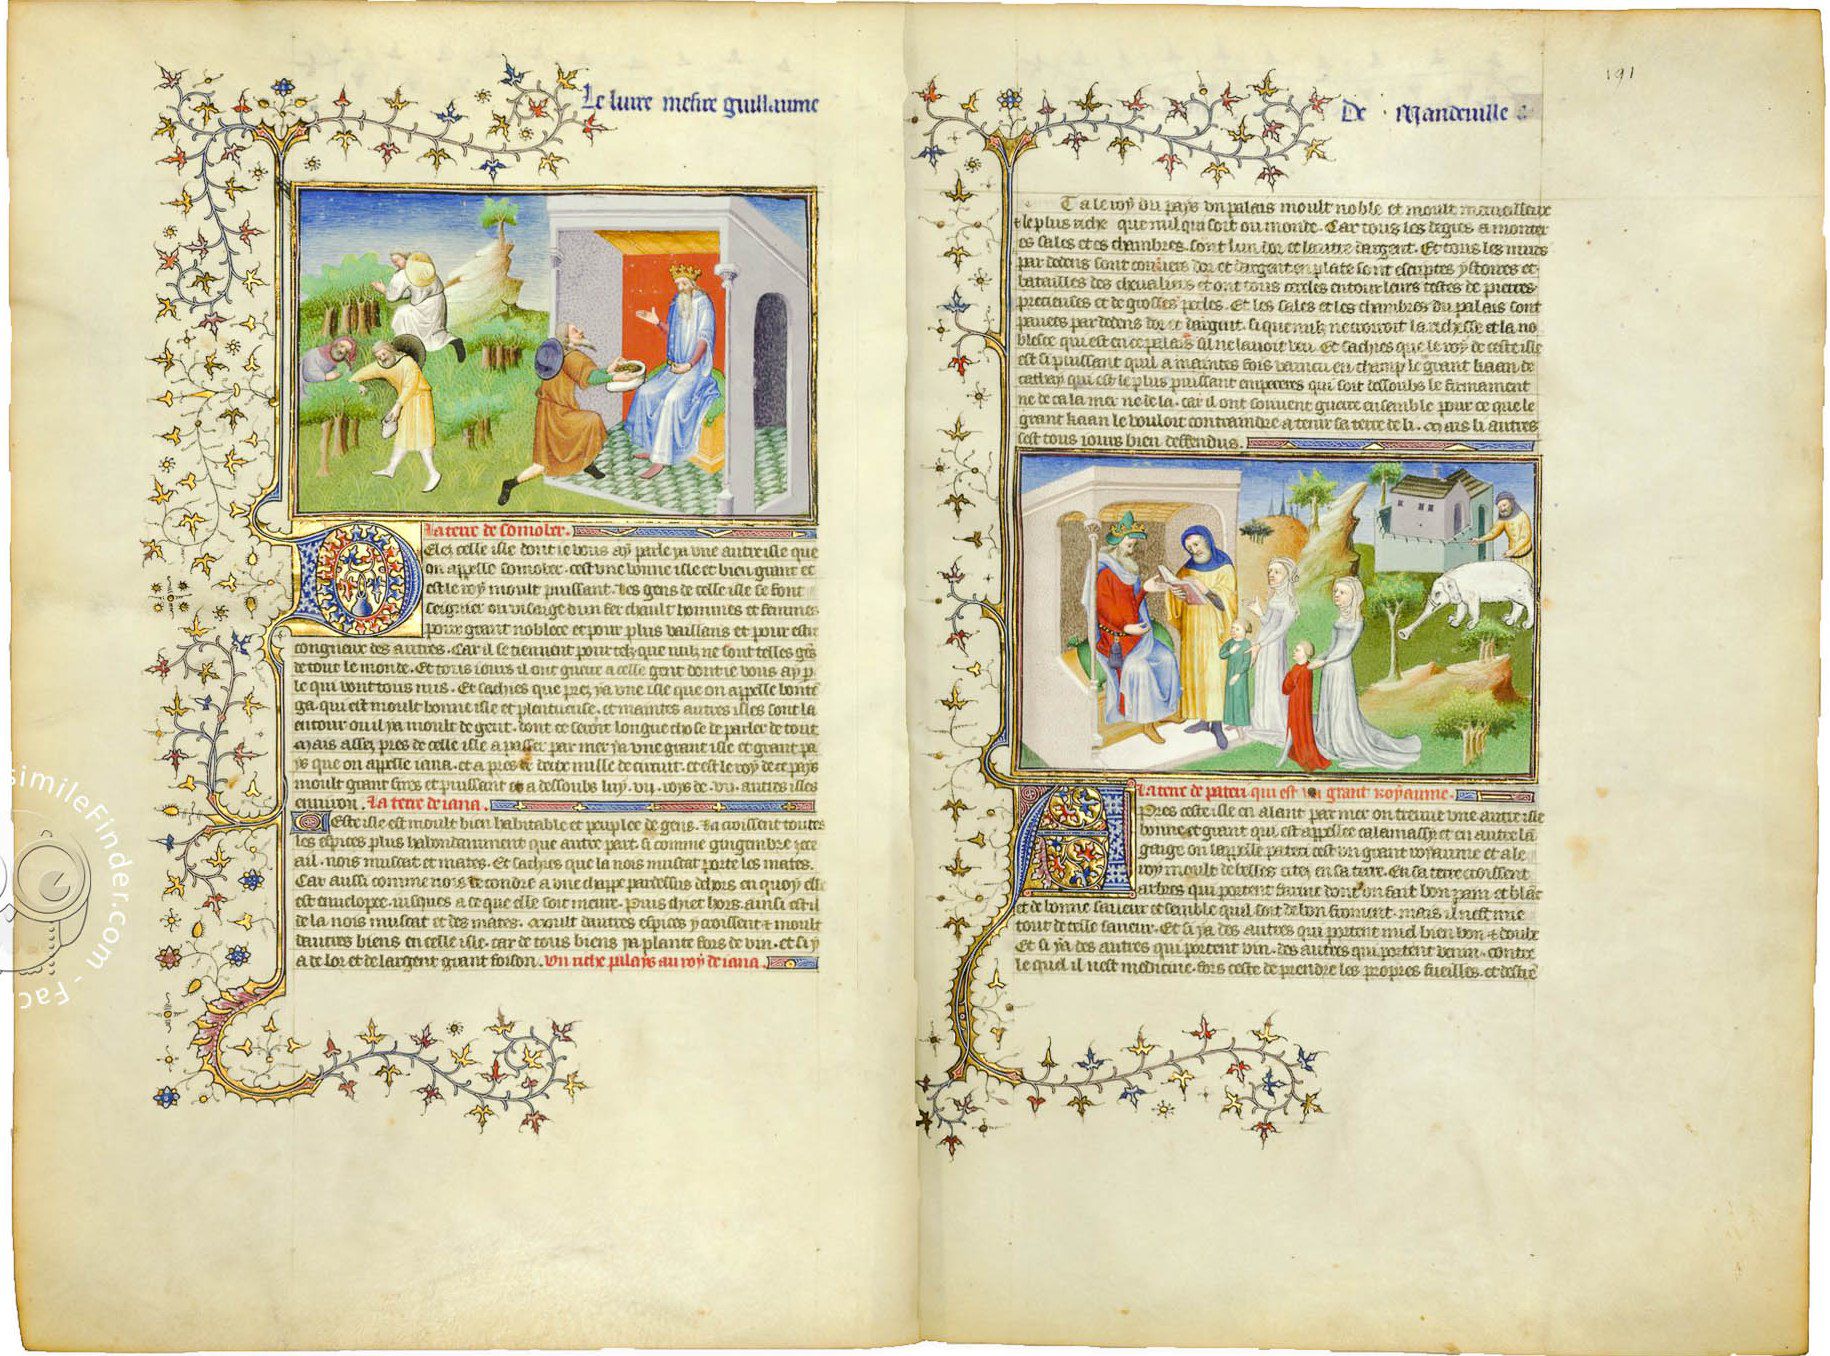 Le liure messire guillaume
La terre de somober.
Delez celle isle dont ie vous ay parle ya une autre isle que
on appelle somober. cest une bonne isle et bien grant et
est le roy moult puissant. Les gens de celle isle se font
seignier ou visaige dun fer chault hommes et femmes
pour grant noblece et pour plus vaillans et pour estre
congneuz des autres. Car il se tiennent pour telz que nulz ne sont telles gens
de tout le monde. Et tous iours il ont guerre a celle gent dont ie vous ay par
le qui vont tous nus. Et sachies que prez ya une isle que on appelle
ga. qui est moult bonne isle et plentueuse. et maintes autres isles sont la
entour ou il ya moult de gent. dont ce seroit longue chose de parler de tout
Mais assez pres de celle isle a passer par mer ya une grant isle et grant pa
ys que on appelle iana. et a pres de deux mille de circuit. et est le roy de ce pays
moult grant sires et puissant et a dessoubs luy .vii. roys de .vii. autres isles
enuiron. La terre de iana.
Ceste isle est moult bien habitable et peuplee de gens. La croissent toutes
les espices plus habondanment que autre part. si comme gingembre
nois muscat et mates. Et sachies que la nois muscat porte les mates.
Car aussi comme nois de a une chappe par dessus dehors en quoy elle
est enuelopee. iusques a ce que elle soit meure. puis chiet hors. ainsi est il
de la nois muscat et des mates. Moult dautres espices y croissent et moult
dautres biens en celle isle. car de tous biens ya plante fors de vin. et si y
a de lor et de largent grant foison. Un riche palays au roy de iana.
De Mandeuille
191
Ta le roy du pays un palais moult noble et moult merueilleux
et le plus riche que nul qui soit ou monde. Car tous les degres a monter
es sales et es chambres. sont lun dor et lautre dargent. Et tous les murs
par dedens sont couuers dor et dargent en plate sont escriptes ystoires et
batailles des cheualiers et ont tous cercles entour leurs testes de pierres
precieuses et de grosses perles. Et les sales et les chambres du palais sont
pauees par dedens dor et dargent. si que nulz ne croiroit la richesse et la no
blesce qui est en ce palais sil ne lauoit veu. Et sachies que le roy de ceste isle
est si puissant quil a maintes fois vaincu en champ le grant kaan de
cathay qui est le plus puissant empereres qui soit dessoubs le firmament
ne de ca la mer ne de la. car il ont souuent guerre ensemble pour ce que le
grant kaan le vouloit contraindre a tenir sa terre de li. Mais li autres
sest tous iours bien deffendus.
La terre de pateu qui est un grant royaume.
Apres ceste isle en alant par mer on treuue une autre isle
bonne et grant qui est appellee calamassy et en autre la
gaige on lappelle pateu cest un grant royaume et a le
roy moult de belles citez en sa terre. En sa terre croissent
arbres qui portent farine dont on fait bon pain et blanc
et de bonne saueur et semble quil soit de bon froment. mais il nest mie
tout de telle saueur. Et si ya des autres qui portent miel bien bon et doulx
Et si ya des autres qui portent vin. des autres qui portent venin. contre
le quel il nest medicine. fors ceste de prendre les propres fueilles. et